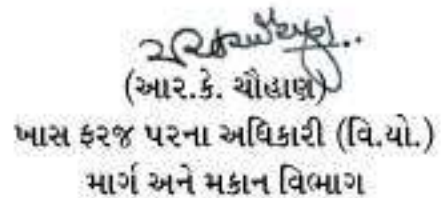 (આર.કે. ચૌહાણ)
ખાસ ફરજ પરના અધિકારી (વિ.યો.)
માર્ગ અને મકાન વિભાગ